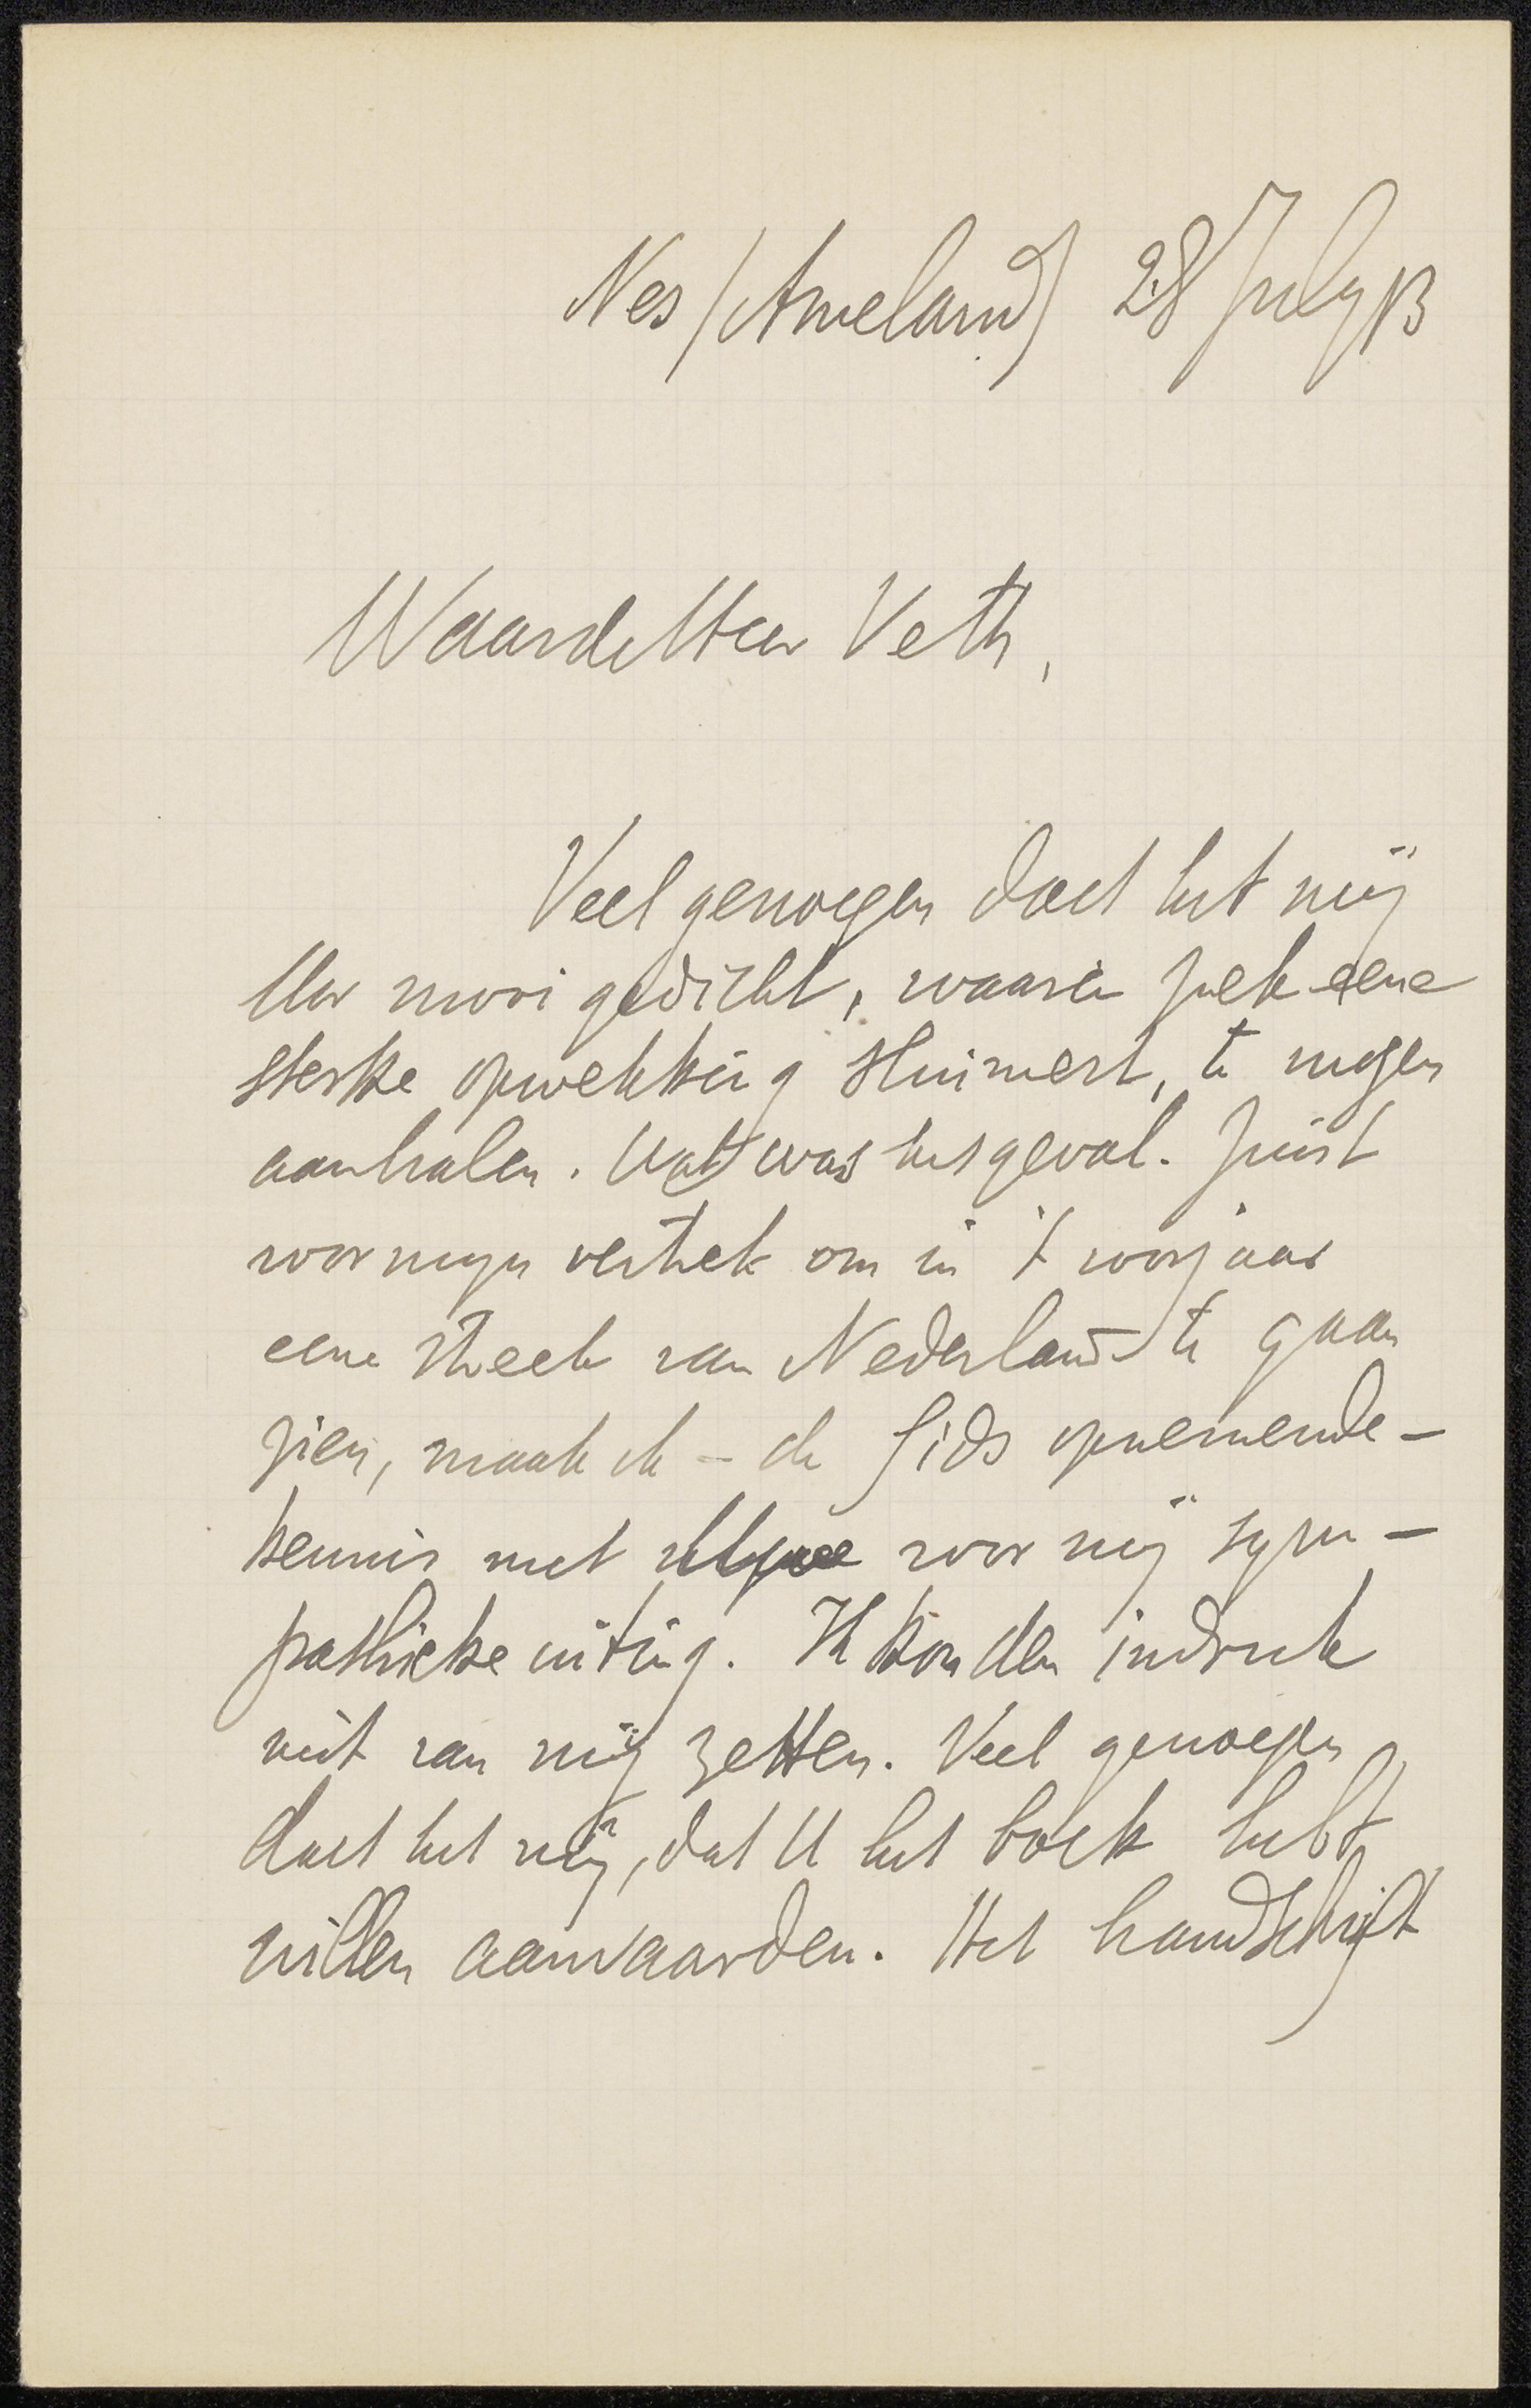 Nes (Ameland) 28 July 13
Waarde Heer Veth,
Veel genoegen doet het mij
Uw mooi gedicht, waarin zulk eene
sterke opwekking sluimert, te mogen
aanhalen. Wat was het geval. Juist
voor mijn vertrek om in 't voorjaar
eene streek van Nederland te gaan
zien, maak ik - de Gids opnemende -
kennis met voor mij sym-
pathieke uiting. Ik kon den indruk
niet van mij zetten. Veel genoegen
doet het mij, dat U het boek hebt
willen aanvaarden. Het handschrift